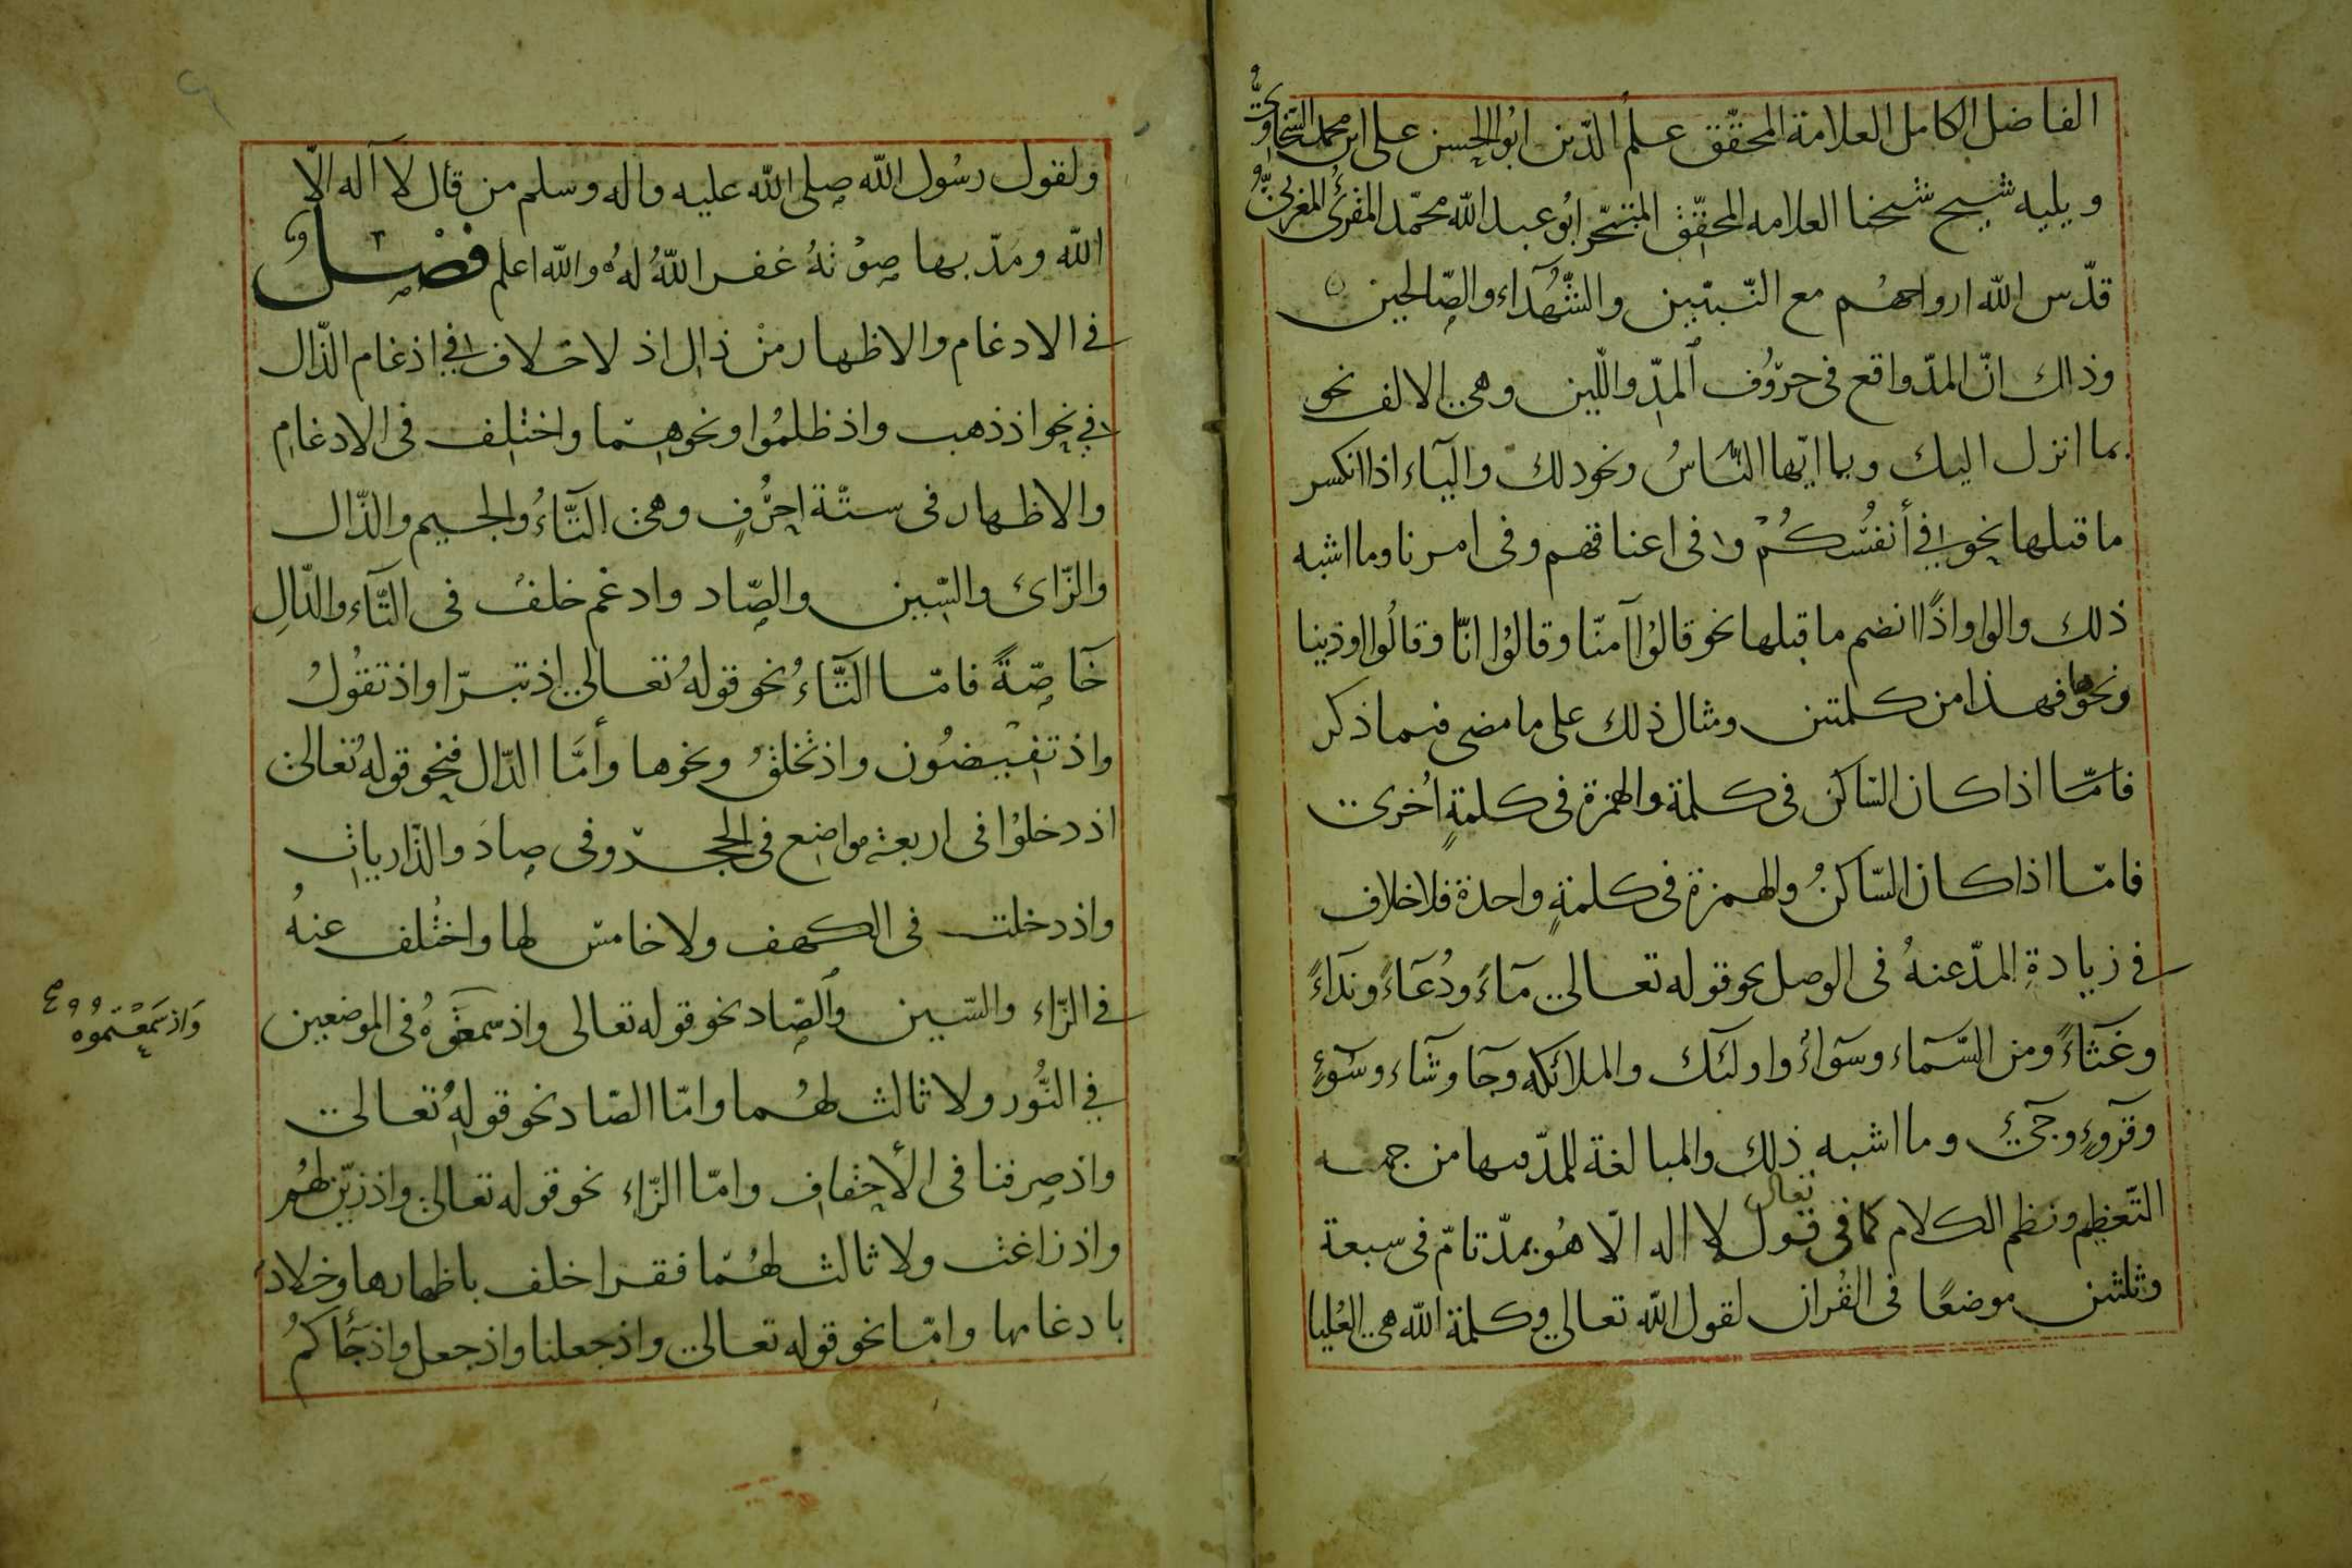 الفاضل الكامل العلامة المحقّق علم الدّين ابوالحسن على ابن محمد السّخاوىّ
ويليه شيخ شيخنا العلامه المحقّق المتبحّر ابو عبد الله محمّد المقرئ المغربىّ
قدّس الله ارواحهم مع النّبيّين والشّهدآء والصّالحين
وذلك انّ المدّ واقع فى حروف المدّ واللّين وهى الالف نحو
بما انزل اليك ويا ايّها النّاسُ ونحو ذلك واليآء اذا انكسر
ما قبلها نحو فى أنفُسكُمْ و فى اعناقهم وفى امرنا وما اشبه
ذلك والواو اذا انضم ما قبلها نحو قالوا آمنّا وقالوا انّا وقالوا اوذينا
ونحوها فهذا من كلمتين ومثال ذلك على ما مضى فيما ذكر
فامّا اذا كان السّاكن فى كلمة والهمزة فى كلمةٍ اُخرى
فامّا اذا كان السّاكنُ والهمزة فى كلمةٍ واحدة فلا خلاف
فى زيادةِ المدّ عنهُ فى الوصل نحو قوله تعالى مآءً ودُعآءً وندآءً
وغثآءً ومن السّمآء وسوآءٌ واولئك والملائكه وجآ وشآء وسوٓءٍ
وقروٓءٍ وجىٓء وما اشبه ذلك والمبالغة للمدّ فيها من جهه
التّعظيم ونظم الكلام كما فى قول تعالى لا اله الّا هُو بمدّ تامّ فى سبعة
وثلثين موضعًا فى القُران لقول الله تعالى وكلمة الله هى العُليا
ولقول رسُول الله صلى الله عليه واله وسلم من قال لا آله الّا
الله ومَدّ بها صوْتهُ غفر اللهُ لهُ والله اعلم فصل
فى الادغام والاظهار منْ ذال اذ لا خلاف فى ادغام الذّال
فى نحو اذ ذهب واذ ظلمُوا ونحوهما واختلف فى الادغام
والاظهار فى ستّة احرُفٍ وهى التّآءُ والجيم والدّال
والزّاى والسّين والصّاد وادغم خلفٌ فى التّآء والدّالِ
خآصّةً فامّا التّآءُ نحو قولهُ تعالى اذ تبرّا واذ تقُولُ
واذ تفيضُون واذ تخلقُ ونحوها وأمّا الدّال فنحو قولهُ تعالى
اذ دخلوُا فى اربعة مواضع فى الحجر وفى صادَ والذّاريات
واذ دخلت فى الكهف ولا خامس لها واختُلف عنهُ
فى الزّاء والسّين والصّاد نحو قوله تعالى واذ سمعتموهُ فى الموضعين
وَاذ سَمعْتموه
فى النُّور ولا ثالث لهُما وامّا الصّاد نحو قولهُ تعالى
واذ صرفنا فى الأحقاف وامّا الزّاء نحو قوله تعالى واذ زيّن لهُم
واذ زاغت ولا ثالث لهُما فقرا خلف باظهارها وخلاد
بادغامها وامّا نحو قوله تعالى واذ جعلنا واذ جعل واذ جآكمُ